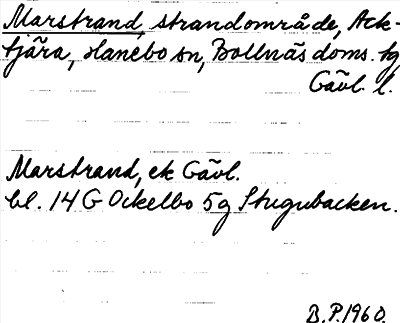 Marstrand, strandområde, Ack-
tjära, Hanebo sn, Bollnäs doms. tg
Gävl. l.
Marstrand, ek Gävl.
bl. 14 G Ockelbo 5g Stugubacken.
B.P. 1960.